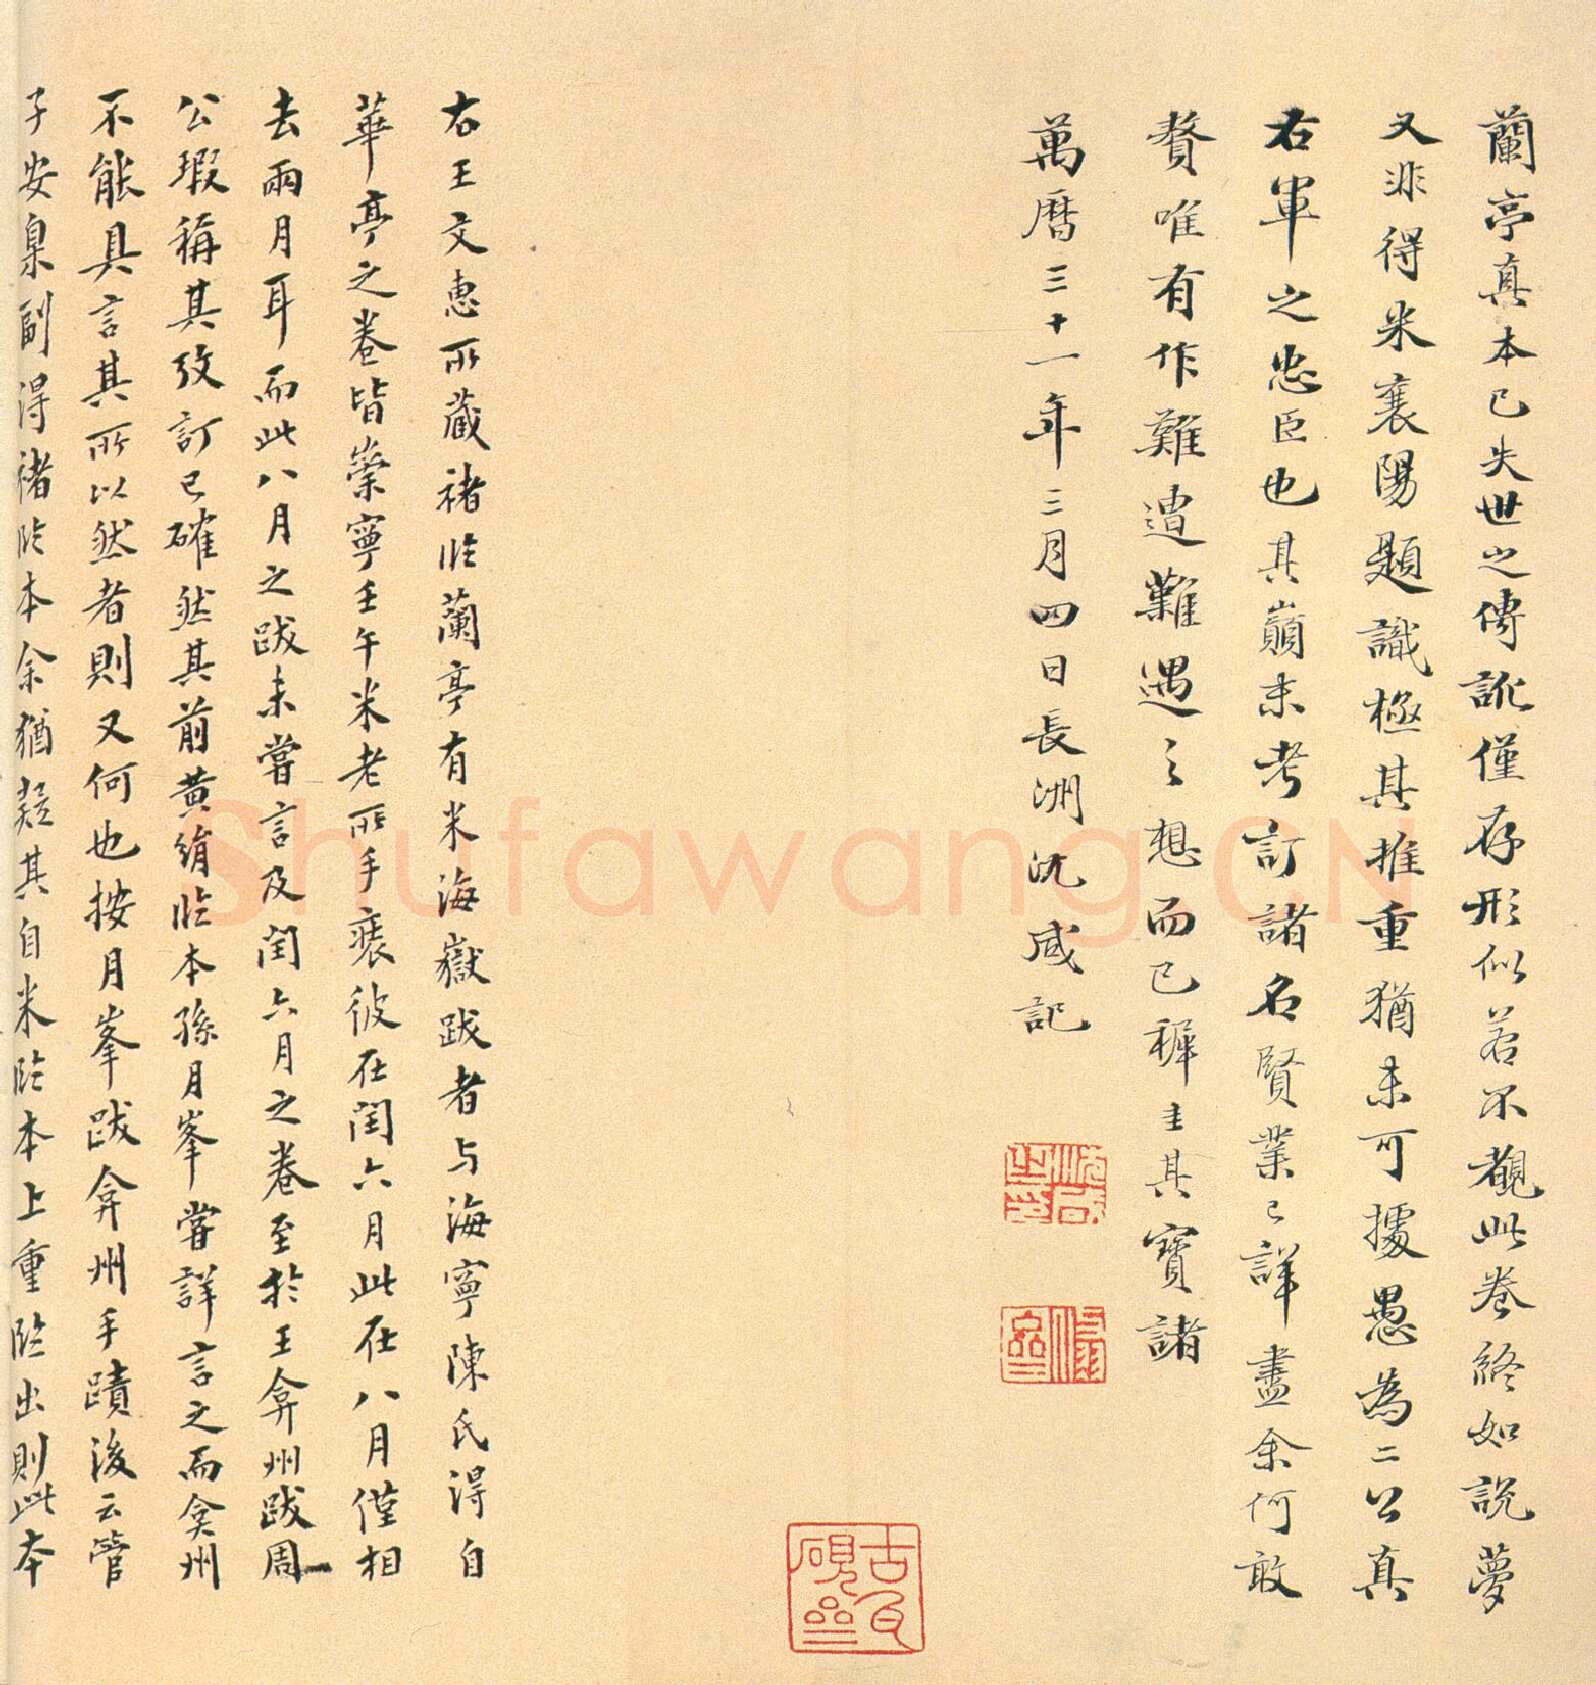 蘭亭真本已失世之傳訛僅存形似若不覩此卷終如説夢
又非得米襄陽題識極其推重猶未可據愚為二公真
右軍之忠臣也其巔末考訂諸名賢業已詳盡余何敢
贅唯有作難遭難遇之想而已穉圭其寳諸
萬曆三十一年三月四日長洲沈咸記
古瓦硯
右王文惠所藏褚臨蘭亭有米海嶽跋者与海寧陳氏得自
華亭之卷皆崇寧壬午米老所手裝彼在閏六月此在八月僅相
去兩月耳而此八月之跋未嘗言及閏六月之卷至於王弇州跋周
公瑕稱其攷訂已確然其前黃絹臨本孫月峯嘗詳言之而弇州
不能具言其所以然者則又何也按月峯跋弇州手蹟後云管
子安臬副得褚臨本余猶疑其自米臨本上重臨出則此本
Shufawang.CN